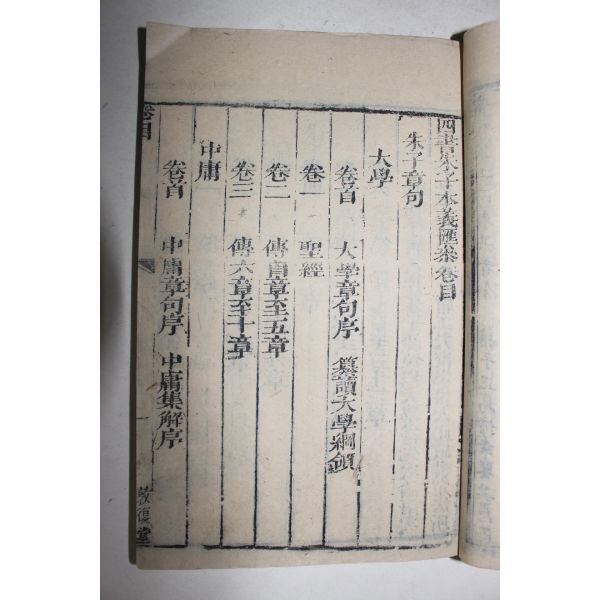 四書朱子本義匯叅卷目
朱子章句
大學
卷首 大學章句序 纂讀大學綱領
卷一 聖經
卷二 傳首章至五章
卷三 傳六章至十章
中庸
卷首 中庸章句序 中庸集解序
卷目
敦復堂